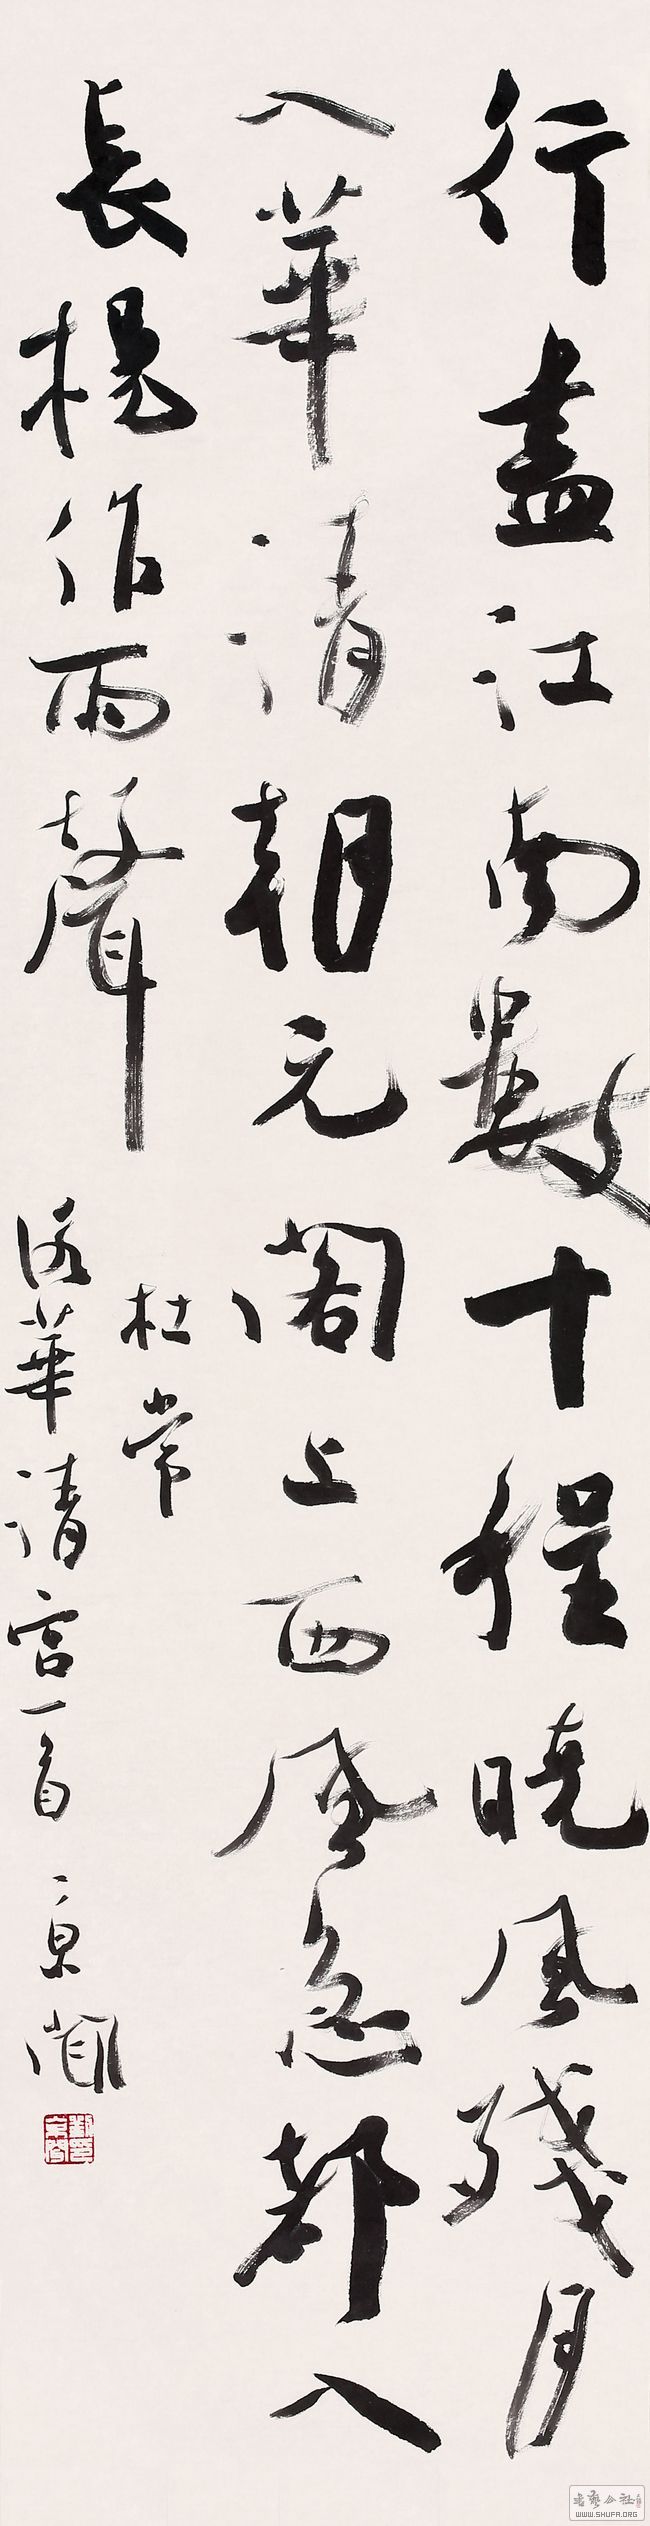 行盡江南數十程曉風殘月
入華清朝元閣上西風急都入
長楊作雨聲
杜常
詠華清宮一首 京聞
書藝公社
WWW.SHUFA.ORG